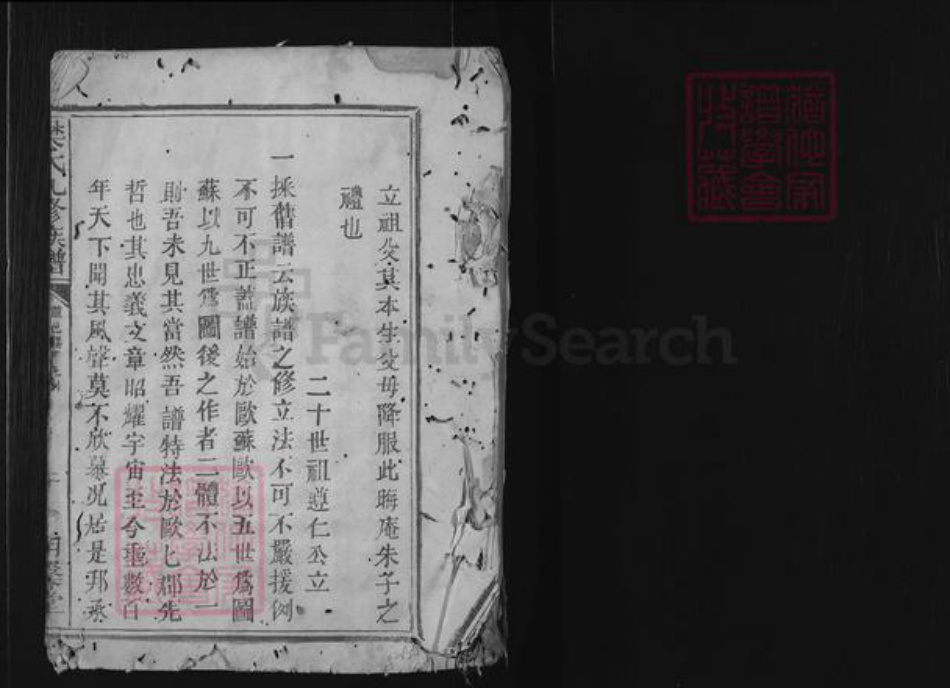 立祖父其本生父母降服此晦庵朱子之
禮也
二十世祖遵仁公立
一採舊譜云族譜之修立法不可不嚴援例
不可不正蓋譜始於歐蘇歐以五世爲圖
蘇以九世爲圖後之作者二體不法於一
則吾未見其當然吾譜特法於歐乜郡先
哲也其忠義文章昭耀宇宙至今垂數百
年天下聞其風聲莫不欣慕况居是邦承
氏九修族譜
FamilySearch